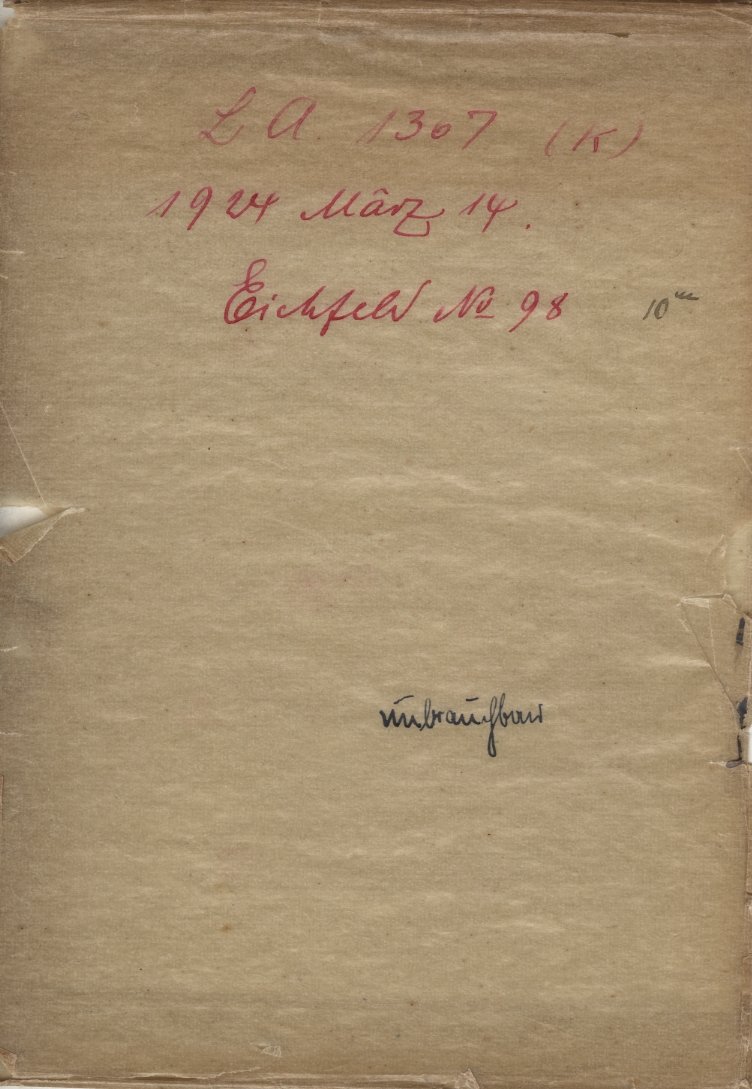 L A. 1307 (K)
1924 März 14.
Eichfeld No 98 10m
unbrauchbar